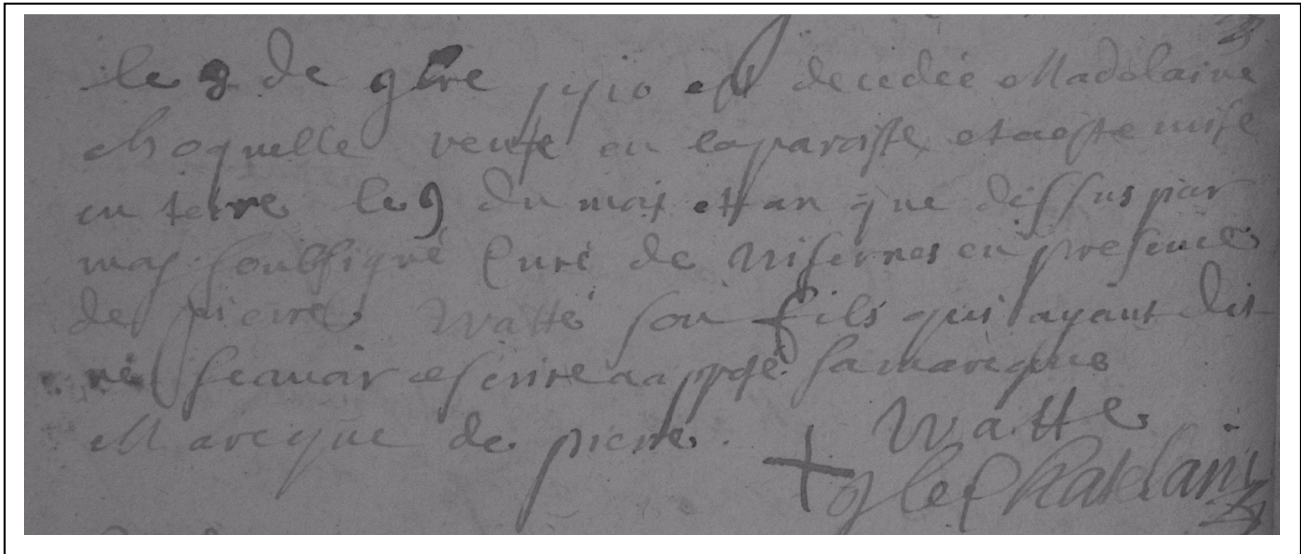 le 9 de 9bre 1710 est decedée Madelaine
Choquelle veufe en laparoisse et a esté mise
en terre le 9 du mois et an que dessus par
moy soubsigné Curé de Nisernes en presence
de pierre Watté son fils qui ayant dit
scavoir escrire a apposé sa marcque
Marcque de pierre Watte